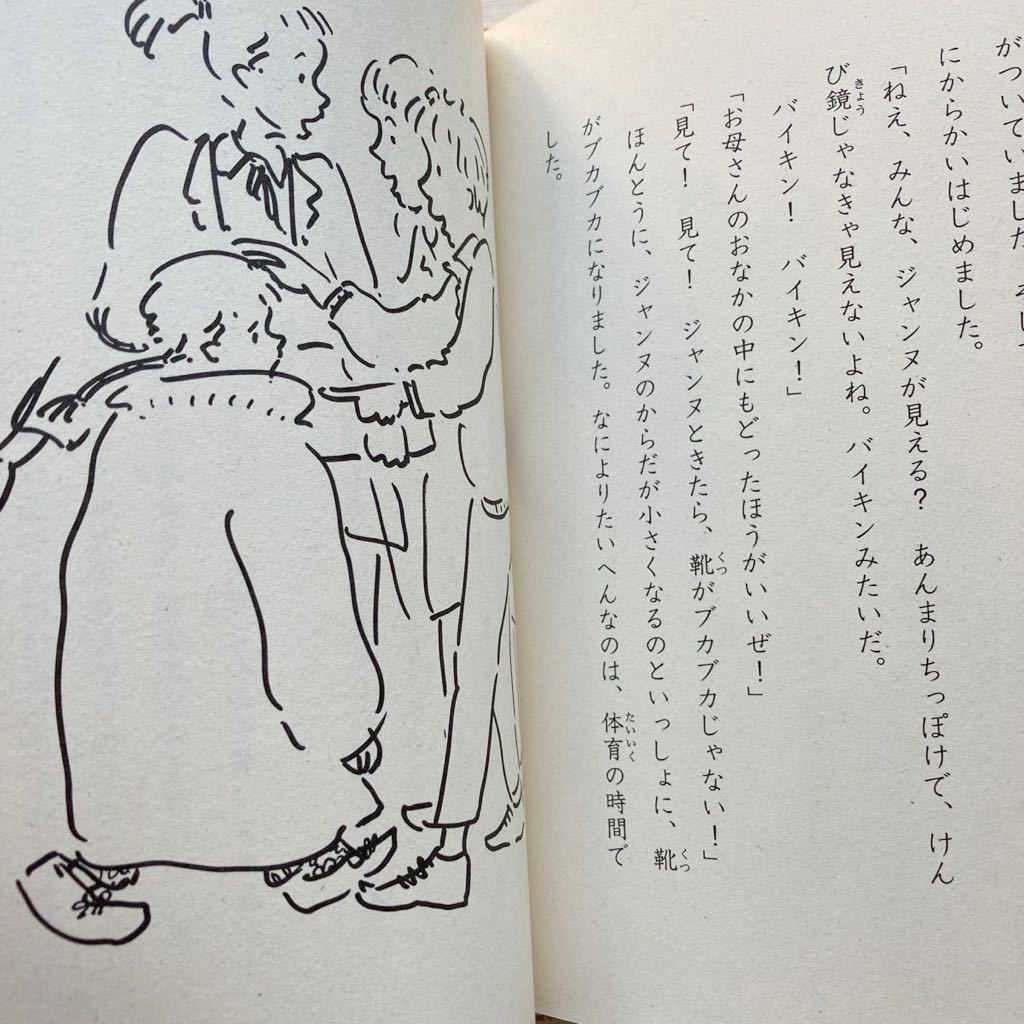 がついていました。そして
にからかいはじめました。
「ねえ、みんな、ジャンヌが見える？　あんまりちっぽけで、けん
び鏡じゃなきゃ見えないよね。バイキンみたいだ。
きょう
バイキン！　バイキン！」
「お母さんのおなかの中にもどったほうがいいぜ！」
「見て！　見て！　ジャンヌときたら、靴がブカブカじゃない！」
くつ
ほんとうに、ジャンヌのからだが小さくなるのといっしょに、靴
くつ
がブカブカになりました。なによりたいへんなのは、体育の時間で
たいいく
した。